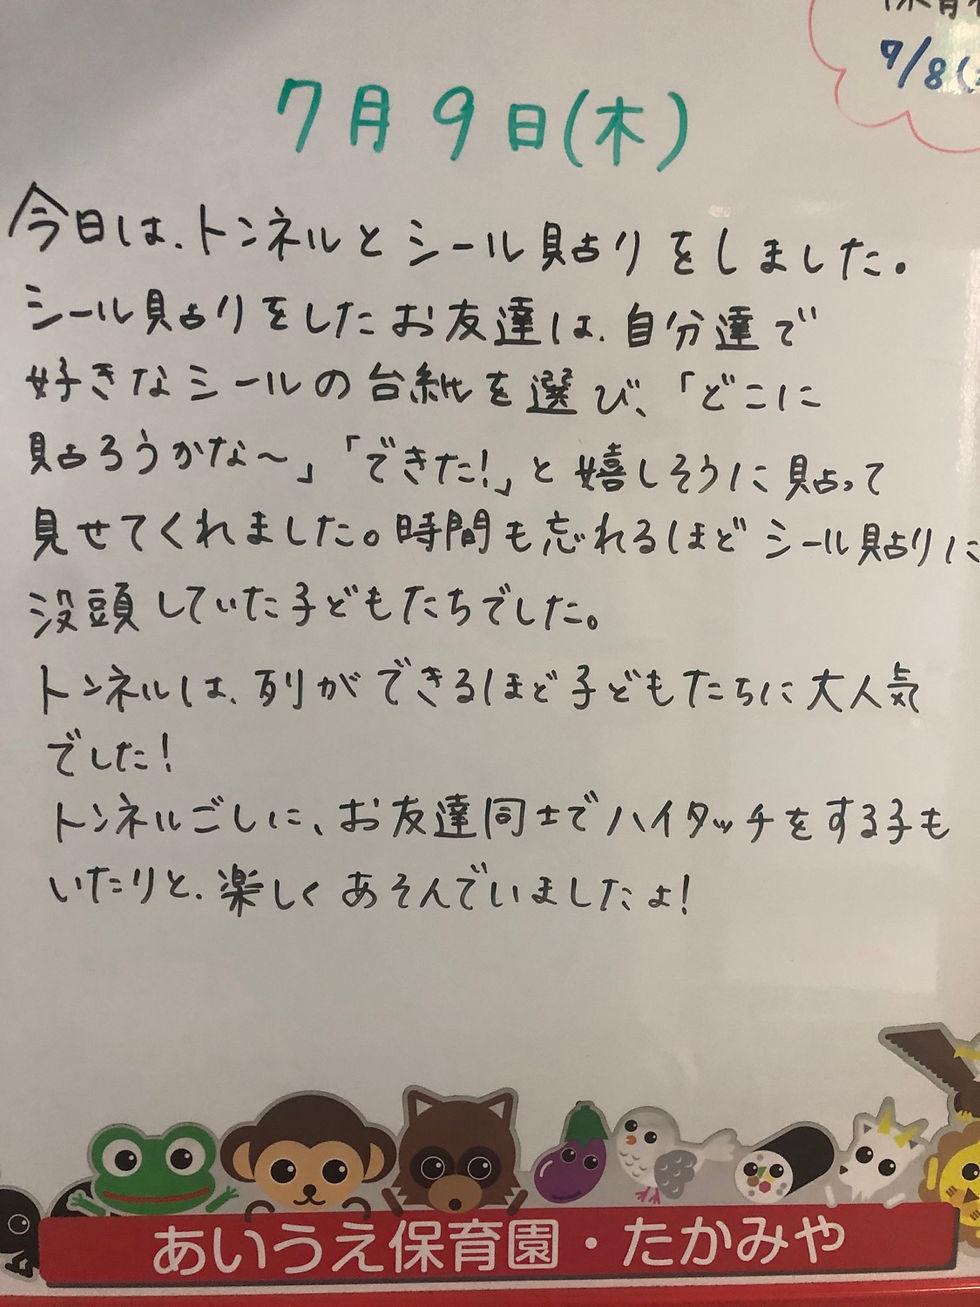 7/8(
7月9日(木)
今日は、トンネルとシール貼りをしました。
シール貼りをしたお友達は、自分達で
好きなシールの台紙を選び、「どこに
貼ろうかな～」「できた!」と嬉しそうに貼って
見せてくれました。時間も忘れるほどシール貼りに
没頭していた子どもたちでした。
トンネルは、列ができるほど子どもたちに大人気
でした!
トンネルごしに、お友達同士でハイタッチをする子も
いたりと、楽しくあそんでいましたよ!
あいうえ保育園・たかみや